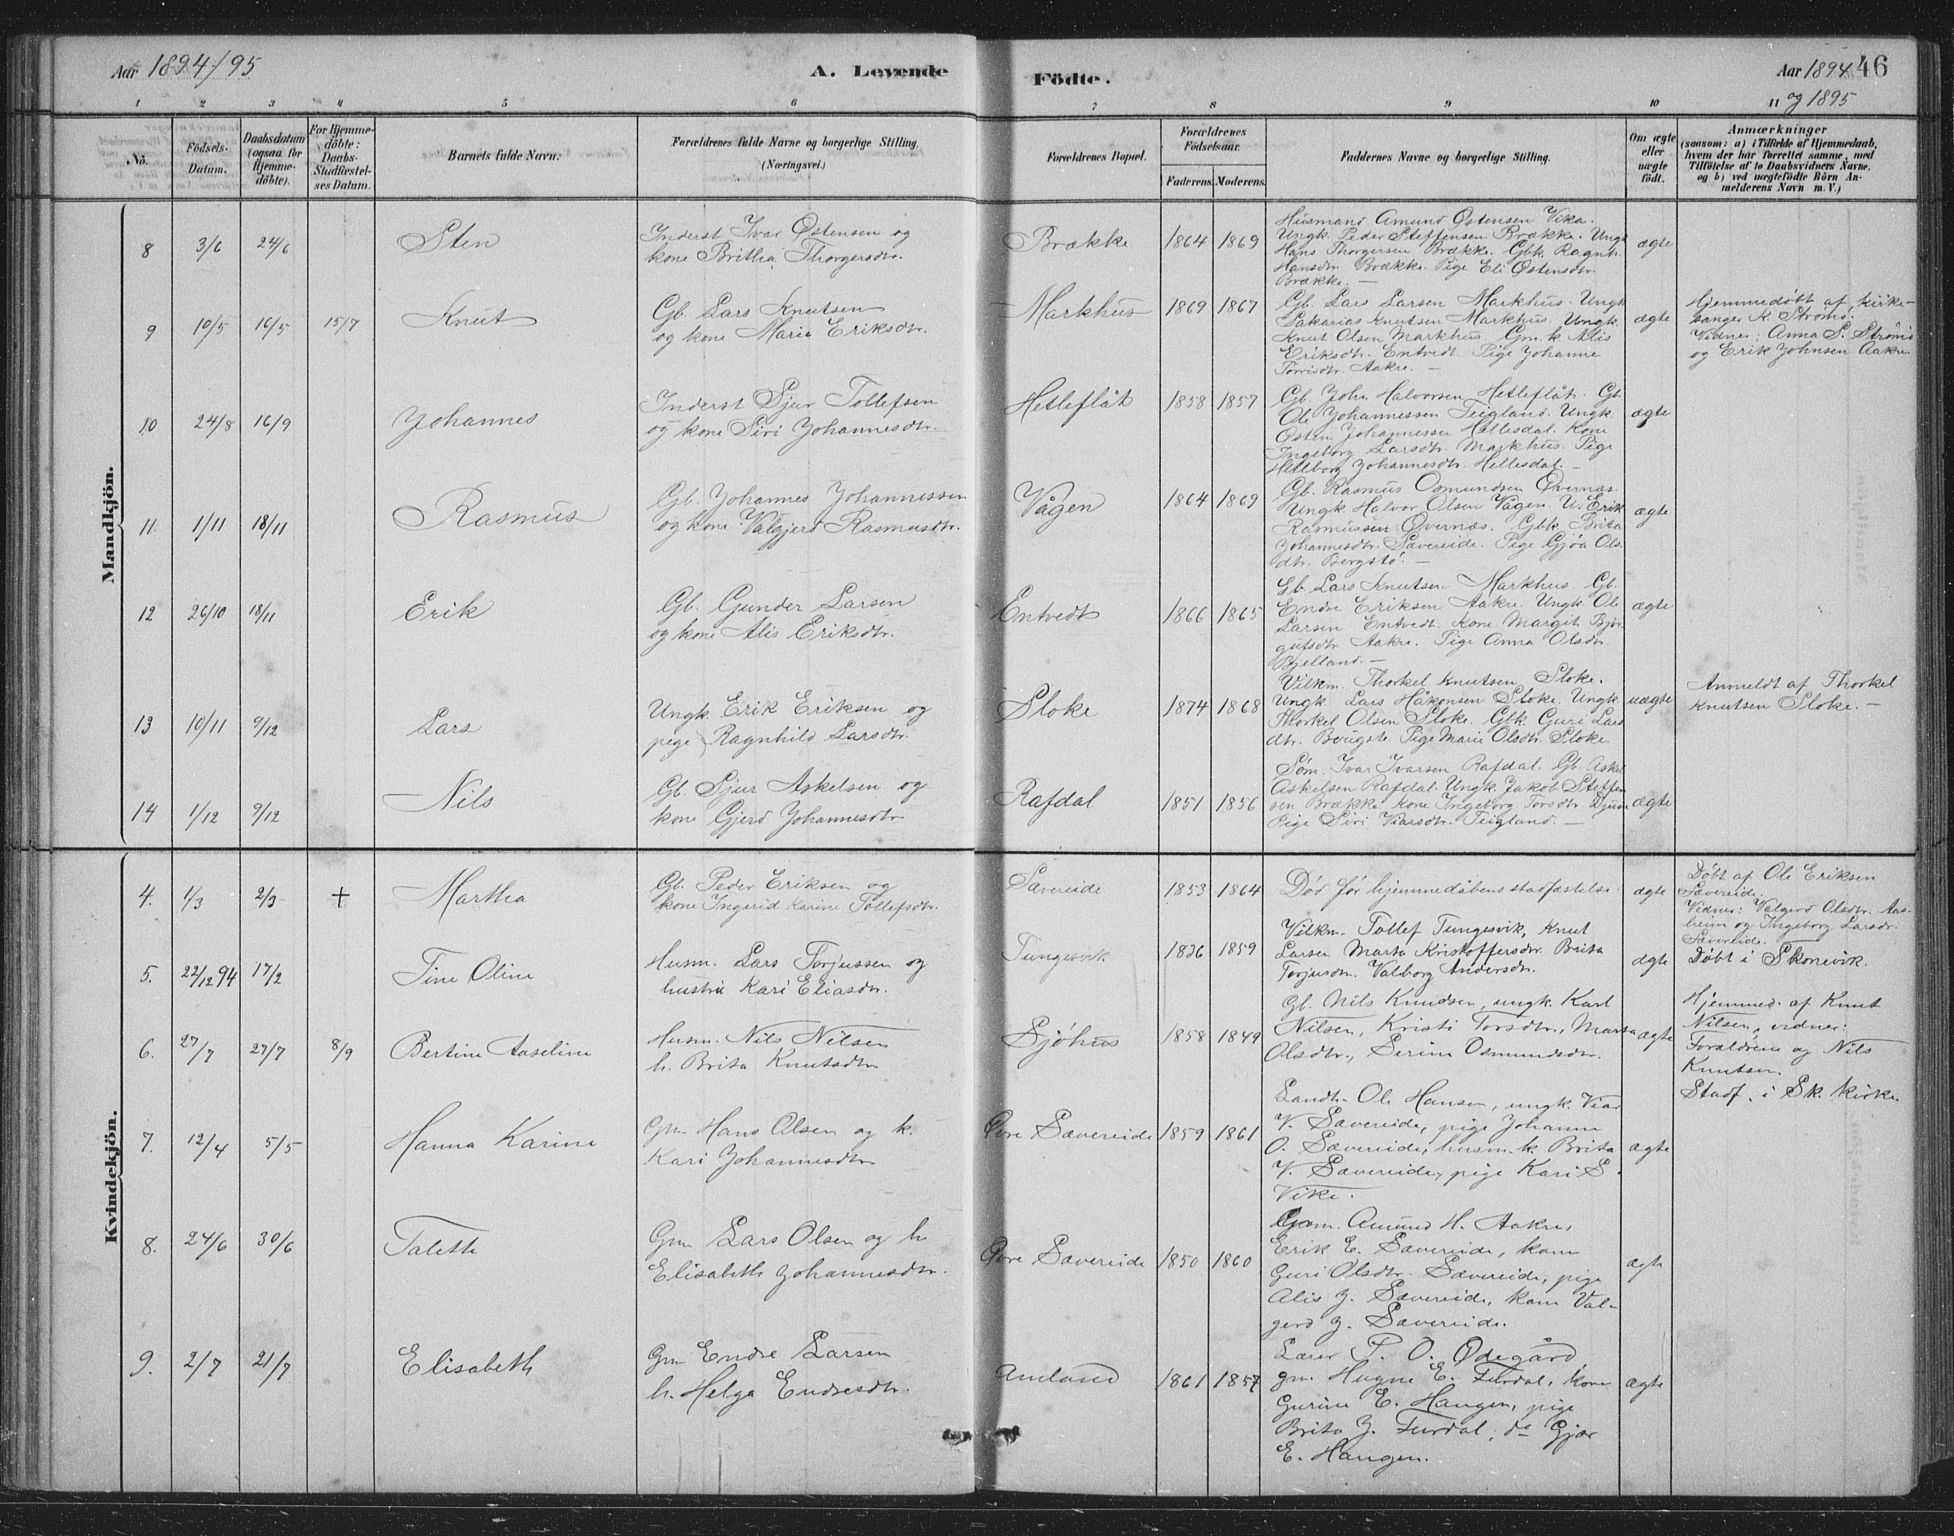 Aar 1894/95
A. Levende
Födte.
Aar 1894 46
og 1895
1 2 3 4 5 6 7 8 9 10 11
No.
Födsels-
Datum.
Daabsdatum
(ogsaa for
Hjemme-
döbte).
For Hjemme-
döbte:
Daabs-
Stadfæstel-
ses Datum.
Barnets fulde Navn.
Forældrenes fulde Navne og borgerlige Stilling
(Næringsvei.)
Forældrenes Bopæl.
Forældrenes
Födselsaar.
Faderens. Moderens.
Faddernes Navne og borgerlige Stilling.
Om ægte
eller
uægte
födt.
Anmærkninger
(saasom: a) i Tilfælde af Hjemmedaab,
hvem der har forrettet samme, med
Tilföielse af to Daabsvidners Navne.
og b) ved uægtefödte Börn An-
melderens Navn m. V.)
Mandkjön.
8 3/6 24/6
Sten
Inderst Ivar Østensen og
kone Britha Thorgersdtr.
Brække
1864 1869
Husmand Amund Østensen Vika.
Ungk. Peder Steffensen Brække. Ungk
Hans Thorgersen Brække. Gbk. Ragnh.
Hansdtr. Brække. Pige Eli Østensdtr.
Brække. —
ægte
9 10/5 16/5 15/7
Knut
Gb. Lars Knutsen
og kone Marie Eriksdtr.
Markhus
1869 1867
Gb. Lars Larsen Markhus. Ungk
Sakarias Knutsen Markhus. Ungk.
Knut Olsen Markhus. Gm. k. Alis
Eriksdtr. Entvedt. Pige Johanne
Torrisdtr. Aakre. —
ægte
Hjemmedøbt af kirke-
sanger K. Strømø.
Vidner: Anna S. Strømø
og Erik Johnsen Aakre
10 24/8 16/9
Johannes
Inderst Sjur Tollefsen
og kone Siri Johannesdtr.
Hetleflåt
1858 1857
Gb. John Halvorsen Hetleflåt. Gb.
Ole Johannessen Teigland. Ungk
Østen Johannessen Hellesdal. Kone
Ingeborg Larsdtr. Markhus. Pige
Johannesdtr. Hellesdal. —
ægte
11 1/11 18/11
Rasmus
Gb. Johannes Johannessen
og kone Valgjerd Rasmusdtr.
Vågen
1864 1869
Gb. Rasmus Osmundsen Øvernæs.
Ungk Halvor Olsen Vågen. U. Erik
Rasmussen Øvernæs. Gbk. Brita
Johannesdtr. Sævereide. Pige Gjøa Ols-
dtr. Bergstø. —
ægte
12 26/10 18/11
Erik
Gb. Gunder Larsen
og kone Alis Eriksdtr.
Entvedt
1866 1865
Gb. Lars Knutsen Markhus. Gb.
Endre Eriksen Aakre. Ungk. Ole
Larsen Entvedt. Kone Margit Bjør-
gufsdtr. Aakre. Pige Anna Olsdtr.
Bjelland. —
ægte
13 10/11 9/12
Lars
Ungk. Erik Eriksen og
pige Ragnhild Larsdtr.
Stoke
1874 1868
Vilkm. Thorkel Knutsen Stoke.
Ungk. Lars Håkonsen Stoke. Ungk
Thorkel Olsen Stoke. Gbk. Guri Lars-
dtr. Bougste. Pige Marie Olsdtr. Stoke
uægte
Anmeldt af Thorkel
Knutsen Stoke. —
14 1/12 9/12
Nils
Gb. Sjur Askelsen og
kone Gjerd Johannesdtr
Rafdal
1851 1856
Søm. Ivar Ivarsen Rafdal. Gb. Askel
Askelsen Rafdal. Ungk. Jakob Steffen-
sen Brække. Kone Ingeborg Torsdtr. Djuv
Pige Siri Viarsdtr. Teigland. —
ægte
Kvindekjön.
4. 1/3 2/3 +
Martha
Gb. Peder Eriksen og
kone Ingerid Karine Tollefsdtr.
Sævereide
1853 1864
Død før hjemmedåbens stadfæstelse
ægte
Døbt af Ole Eriksen
Sævereide.
Vidner: Valgerd Olsdtr. Aas-
heim og Ingeborg Larsdr.
Sævereide.
5. 22/12 94 17/2
Tine Oline
Husm. Lars Torjussen og
hustru Kari Eliasdr.
Tungesvik
1836 1859
Vilkm. Tollef Tungesvik, Knut
Larsen Marta Kristoffersdtr. Brita
Torjusdtr. Valborg Andersdtr.
ægte
Døbt i Skonevik.
6. 27/7 27/7 8/9
Bertine Aaseline
Husm. Nils Nilsen
h. Brita Knutsdtr
Sjöhus
1858 1849
Gb. Nils Knudsen, ungk. Karl
Nilsen, Kristi Torsdtr., Marta
Olsdtr., Serine Osmundsdtr.
ægte
Hjemmed. af Knut
Nilsen, vidner:
Forældrene og Nils
Knutsen.
Stadf. i Sk. kirke
7. 12/4 5/5
Hanna Karine
Gm Hans Olsen og k.
Kari Johannesdtr
Øvre Sævereide
1859 1861
Landh. Ole Hansen, ungk. Viar
V. Sævereide, pige Johanne
O. Sævereide, husm. k. Brita
V. Sævereide, pige Kari S.
Vike.
ægte
8. 24/6 30/6
Talette
Gm Lars Olsen og h.
Elisabeth Johannesdtr.
Øvre Sævereide
1850 1860
Gm. Amund H. Aakre,
Erik E. Sævereide, kone
Guri Olsdtr. Sævereide, pige
Alis J. Sævereide, kone Val-
gerd J. Sævereide.
ægte
9. 2/7 21/7
Elisabeth
Gm Endre Larsen
h. Helga Endresdtr.
Amland
1861 1857
Lærer P. O. Ødegård,
gm. Hugne E. Furdal, kone
Gurine E. Haugen, pige
Brita J. Furdal, do Gjør
E. Haugen.
ægte